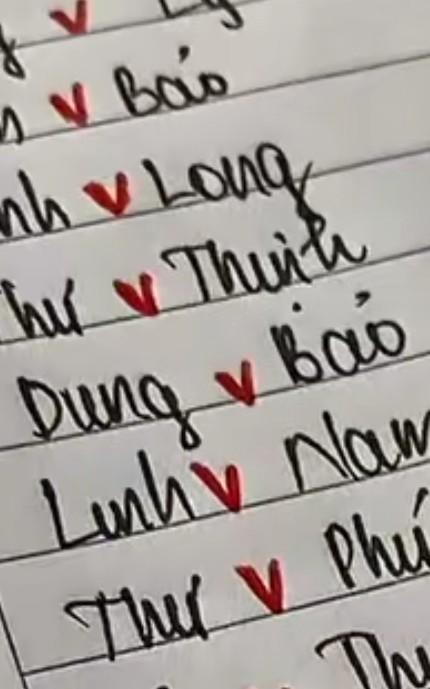 v
v Bảo
v Long
Thư v Thịnh
Dung v Bảo
Linh v Nam
Thư v Phú